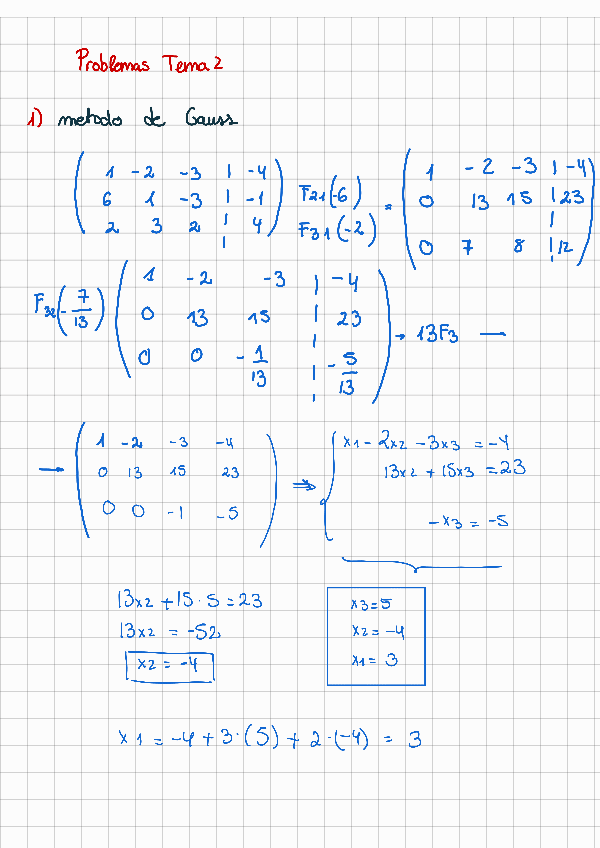 Problemas Tema 2
1) metodo de Gauss
( 1 -2 -3 | -4
6 1 -3 | -1
2 3 2 | 4 ) F21(-6) F31(-2) = ( 1 -2 -3 | -4
0 13 15 | 23
0 7 8 | 12 )
F32(-7/13) ( 1 -2 -3 | -4
0 13 15 | 23
0 0 -1/13 | -5/13 ) → 13F3 →
→ ( 1 -2 -3 -4
0 13 15 23
0 0 -1 -5 ) ⇒ { x1 - 2x2 - 3x3 = -4
13x2 + 15x3 = 23
-x3 = -5
13x2 + 15 · 5 = 23
13x2 = -52
x2 = -4
x3 = 5
x2 = -4
x1 = 3
x1 = -4 + 3·(5) + 2·(-4) = 3